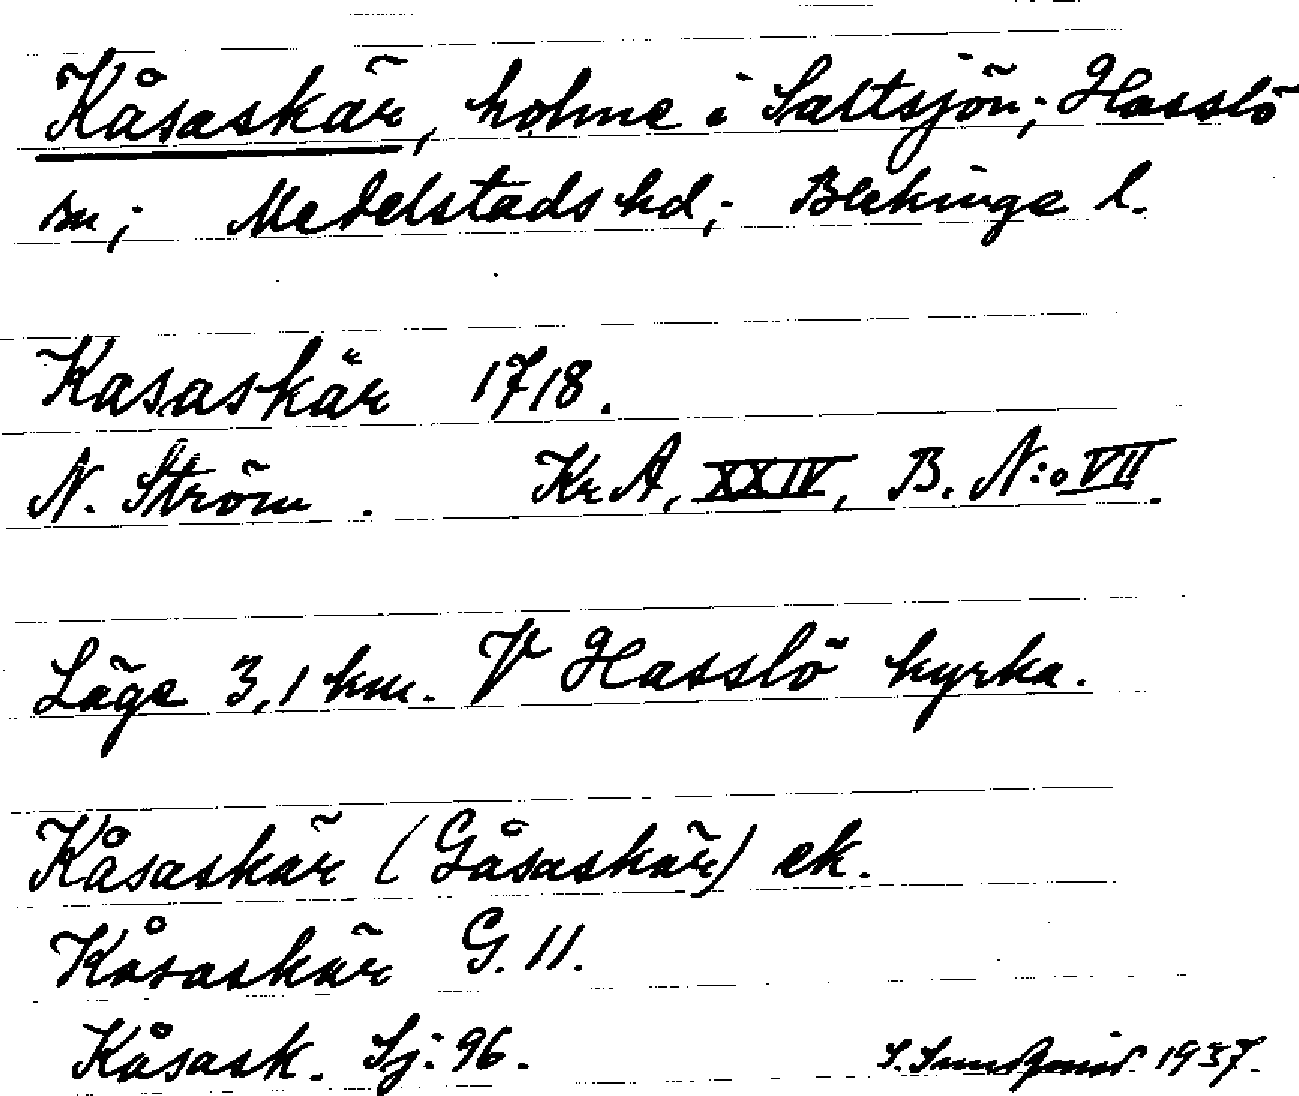 Kåsaskär, holme i Saltsjön; Hasslö
sn; Medelstads hd; Blekinge l.
Kasaskär 1718.
N. Ström. Kr A, XXIV, B. N:o VII.
Läge 3,1 km. V Hasslö kyrka.
Kåsaskär (Gåsaskär) ek.
Kåsaskär G. 11.
Kåsask. Sj: 96. 1937.